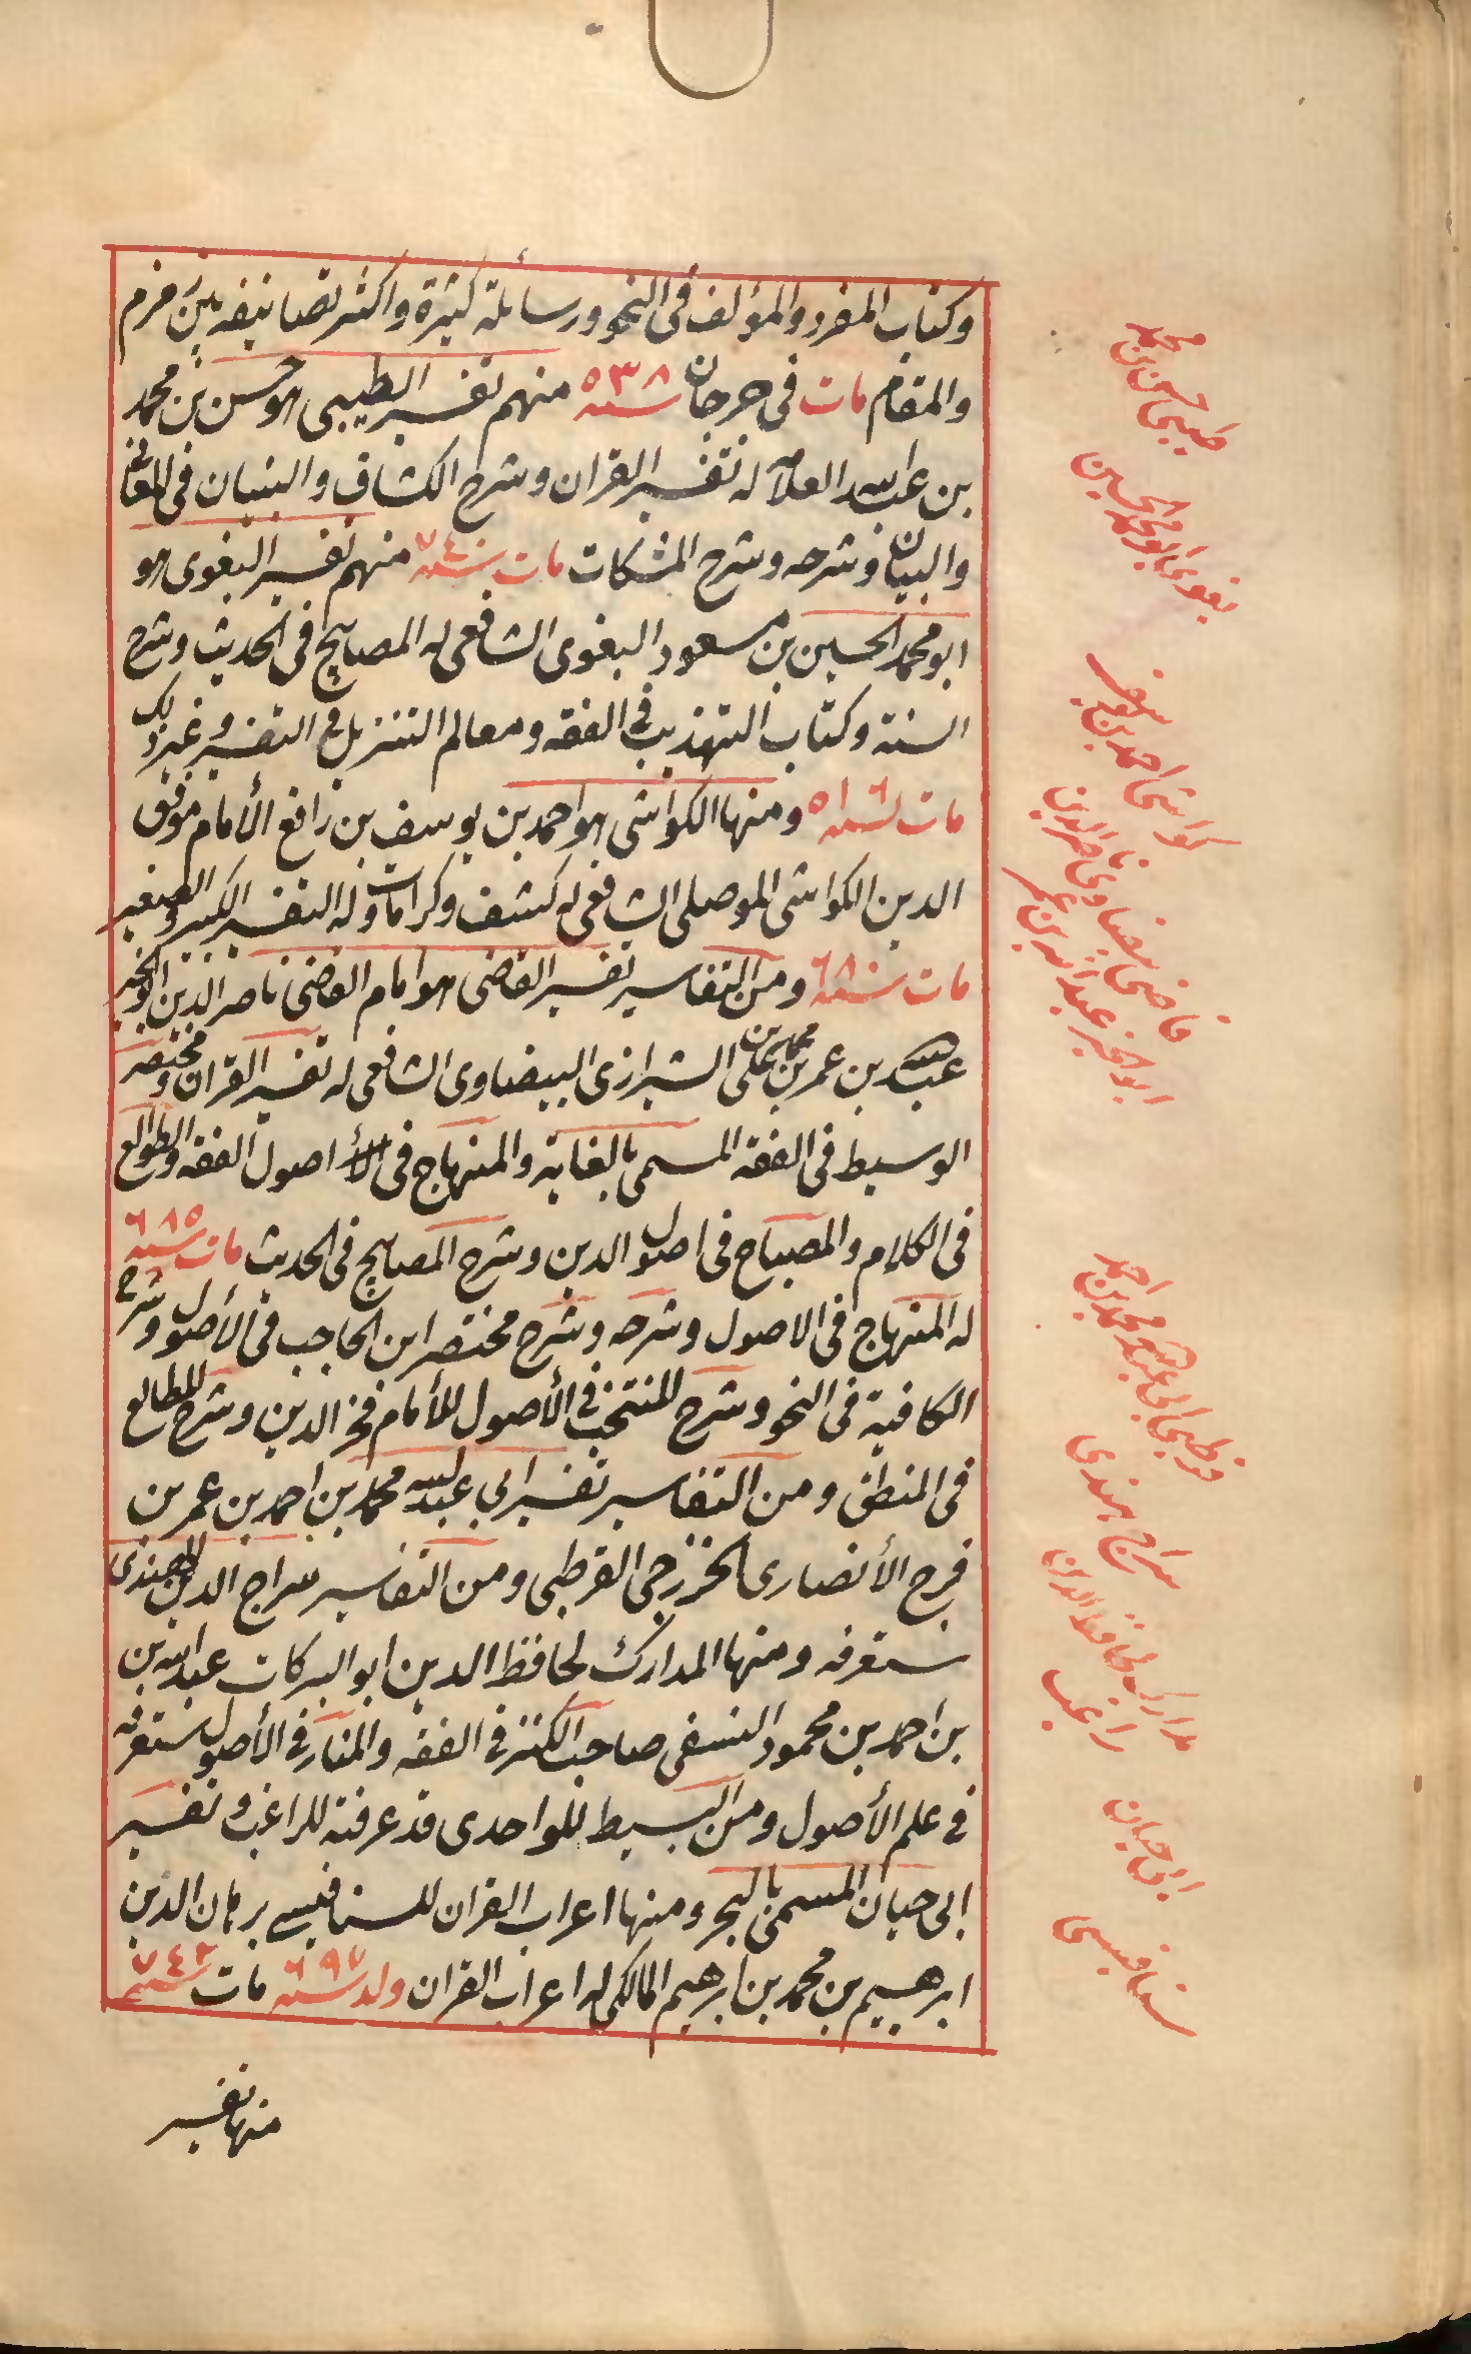 وكتاب المفرد والمؤلف فى النحو ورسائله كثيرة واكثر تصانيفه بين مزم
والمقام مات فى جرجان سنه ٥٣٨ منهم تفسير الطيبى هو حسن بن محمد
بن عبد الله العلامه له تفسير القران وشرح الكشاف والتبيان فى المعانى
والبيان وشرحه وشرح المشكات مات سنه ٧٤٠ منهم تفسير البغوى هو
ابو محمد الحسين بن مسعود البغوى الشافعى له المصابيح فى الحديث وشرح
السنة وكتاب التهذيب فى الفقه ومعالم التنزيل فى التفسير وغير ذلك
مات سنه ٥١٦ ومنها الكواشى هو احمد بن يوسف بن رافع الأمام موفق
الدين الكواشى الموصلى الشافعى له كشف وكرامات وله التفسير الكبير والصغير
مات سنه ٦٨٠ ومن التفاسير تفسير القاضى هو امام القاضى ناصر الدين ابو الخير
عبد الله بن عمر بن محمد بن على الشيرازى البيضاوى الشافعى له تفسير القران ومختصر
الوسيط فى الفقه المسمى بالغاية والمنهاج فى اصول الفقه والطوالع
فى الكلام والمصباح فى اصول الدين وشرح المصابيح فى الحديث مات سنه ٦٨٥
له المنهاج فى الاصول وشرحه وشرح مختصر ابن الحاجب فى الأصول وشرح
الكافية فى النحو وشرح المنتخب فى الأصول للأمام فخر الدين وشرح المطالع
فى المنطق ومن التفاسير تفسير ابي عبد الله محمد بن احمد بن عمر بن
فرح الأنصارى الخزرجى القرطبى ومن التفاسير سراج الدين الهندى
ستعرفه ومنها المدارك لحافظ الدين ابو البركات عبد الله بن
بن احمد بن محمود النسفى صاحب الكنز فى الفقه والمنار فى الأصول ستعرفه
فى علم الأصول ومن البسيط للواحدى قد عرفته للراغب وتفسير
ابى حيان المسمى بالبحر ومنها اعراب القران للسفاقسى برهان الدين
ابرهيم بن محمد بن ابرهيم المالكى له اعراب القران ولد سنه ٦٩٧ مات سنه ٧٤٢
منها تفسير
طيبى حسن بن محمد
بغوى ابو محمد الحسين
كواشى احمد بن يوسف
قاضى بيضاوى ناصر الدين
ابو الخير عبد الله بن عمر
قرطبى ابى عبد الله محمد بن احمد
سراج هندى
مدارك لحافظ الدين
راغب
ابى حيان
سفاقسى